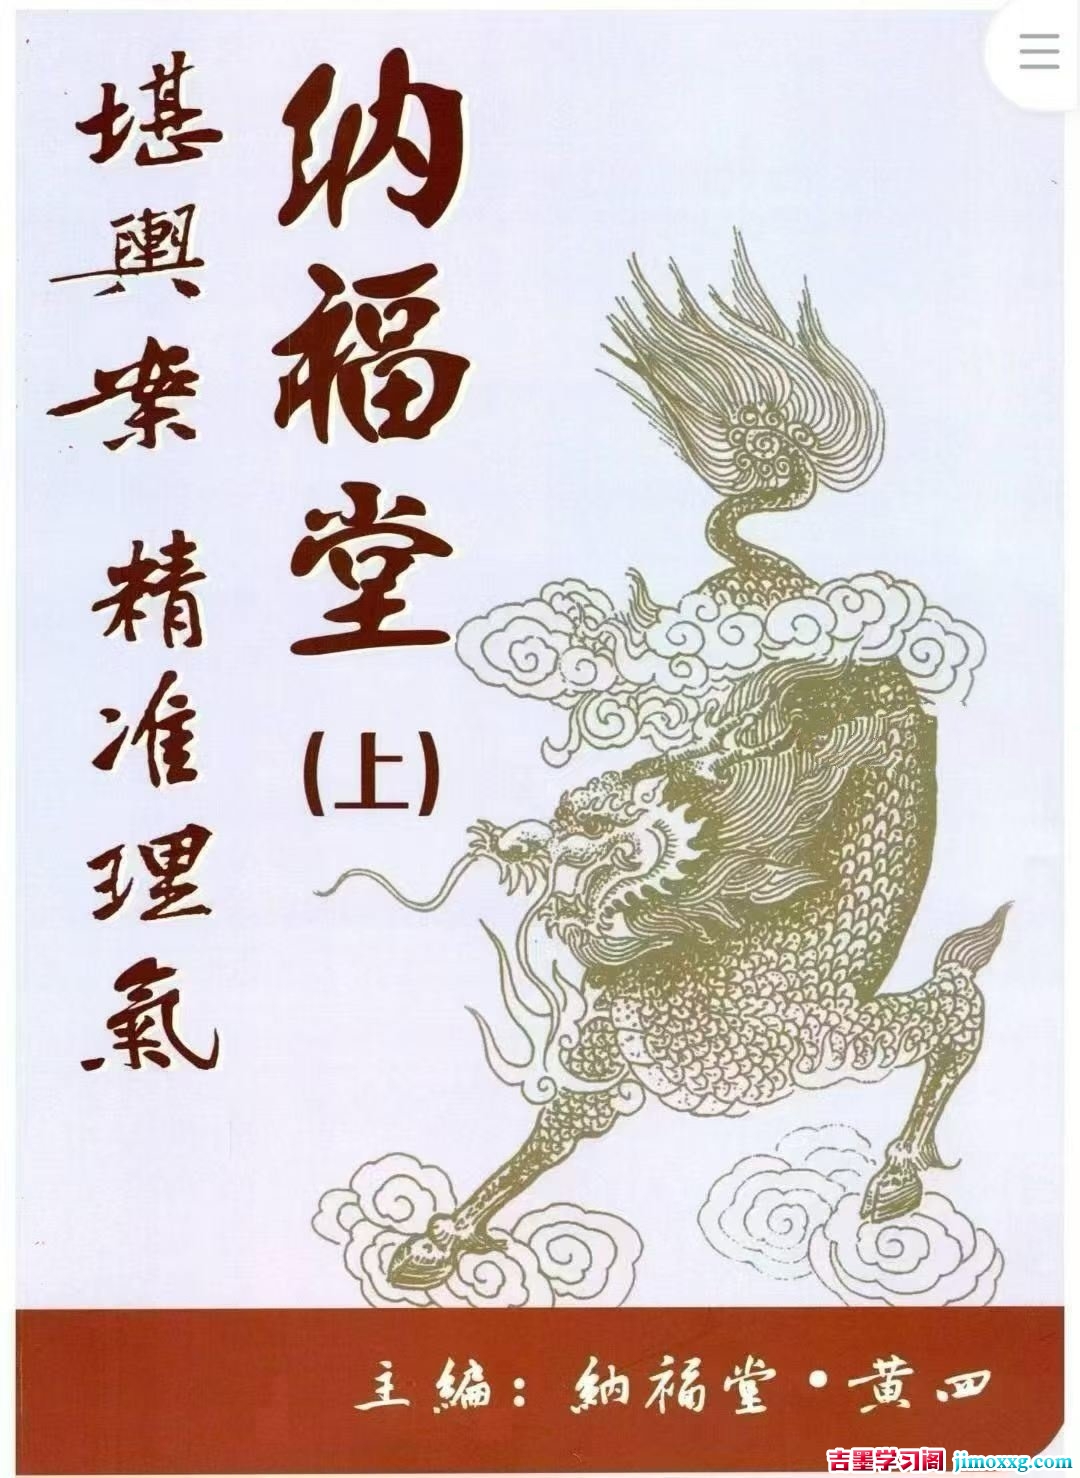 纳福堂
(上)
堪輿案 精准理氣
主編：納福堂·黄四
吉墨学习阁 jimoxxg.com